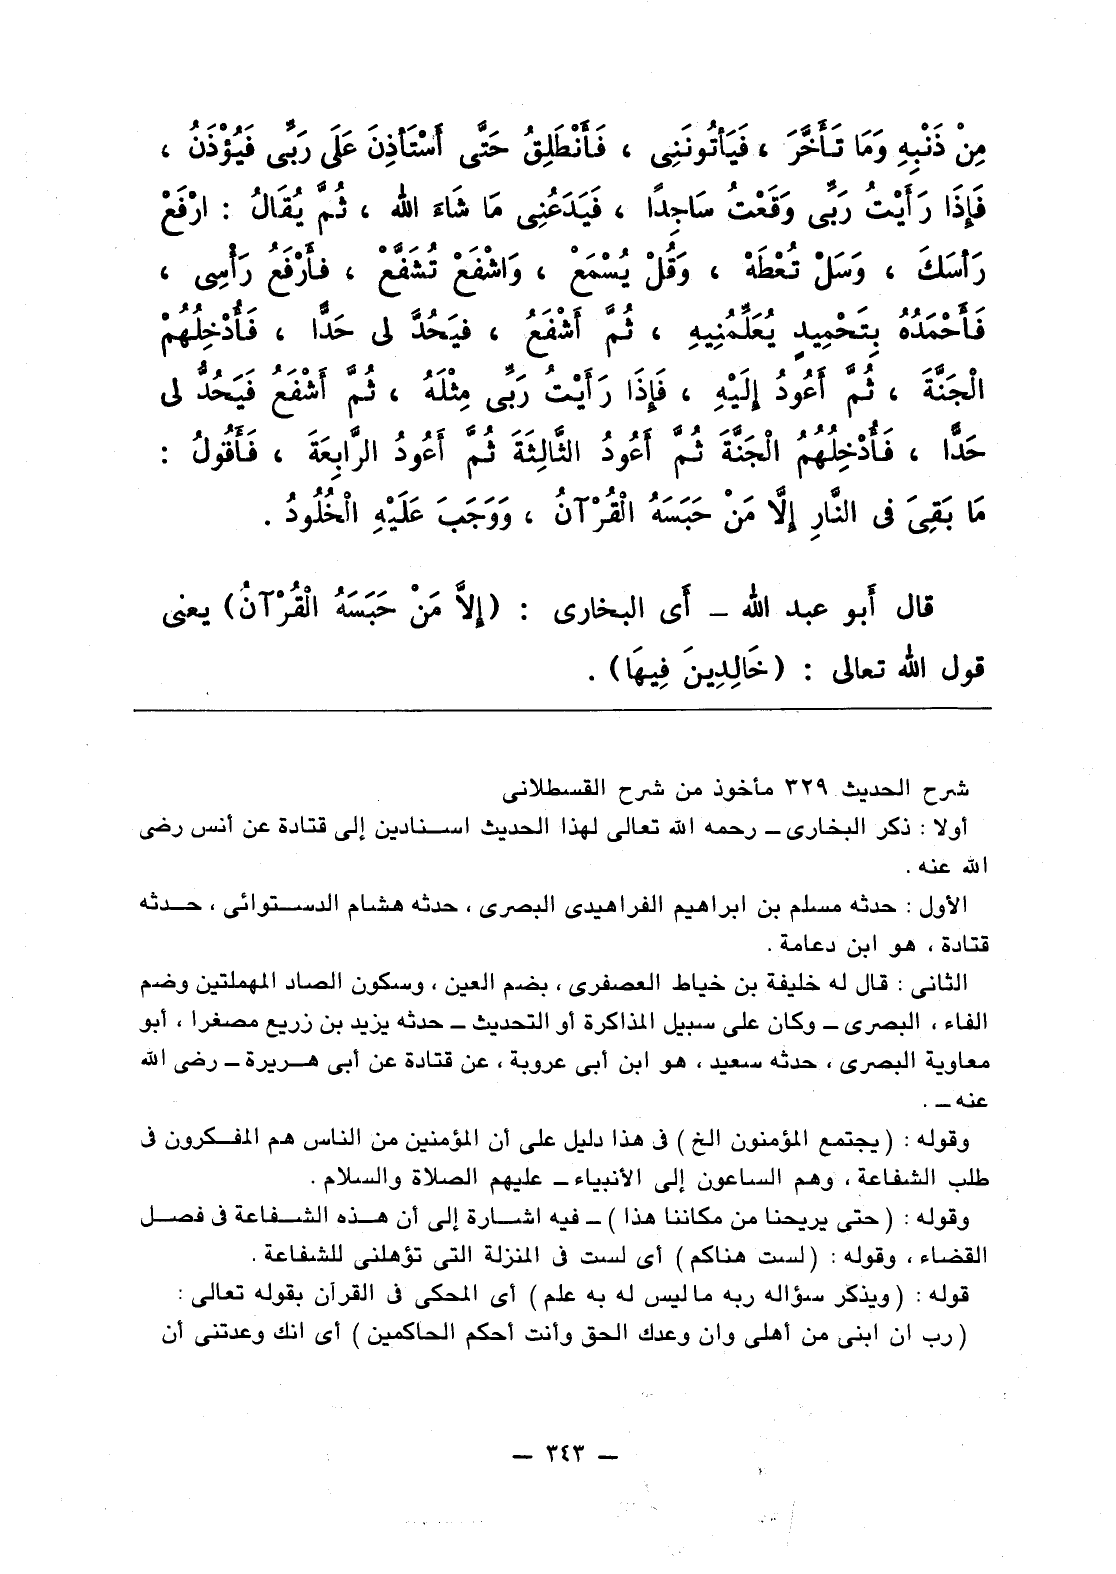 مِنْ ذَنْبِهِ وَمَا تَأَخَّرَ ، فَيَأْتُونَنِى ، فَأَنْطَلِقُ حَتَّى أَسْتَأْذِنَ عَلَى رَبِّى فَيُؤْذَنُ ،
فَإِذَا رَأَيْتُ رَبِّى وَقَعْتُ سَاجِدًا ، فَيَدَعُنِى مَا شَاءَ الله ، ثُمَّ يُقَالُ : ارْفَعْ
رَأْسَكَ ، وَسَلْ تُعْطَهْ ، وَقُلْ يُسْمَعْ ، وَاشْفَعْ تُشَفَّعْ ، فأَرْفَعُ رَأْسِى ،
فَأَحْمَدُهُ بِتَحْمِيدٍ يُعَلِّمُنِيهِ ، ثُمَّ أَشْفَعُ ، فيَحُدُّ لى حَدًّا ، فَأُدْخِلُهُمْ
الْجَنَّةَ ، ثُمَّ أَعُودُ إِلَيْهِ ، فَإِذَا رَأَيْتُ رَبِّى مِثْلَهُ ، ثُمَّ أَشْفَع فَيَحُدُّ لى
حَدًّا ، فَأُدْخِلُهُمُ الْجَنَّةَ ثُمَّ أَعُودُ الثَّالِثَةَ ثُمَّ أَعُودُ الرَّابِعَةَ ، فَأَقُولُ :
مَا بَقِىَ فى النَّارِ إِلَّا مَنْ حَبَسَهُ الْقُرْآنُ ، وَوَجَبَ عَلَيْهِ الْخُلُودُ .
قال أَبو عبد الله – أَى البخارى : (إِلاَّ مَنْ حَبَسَهُ الْقُرْآنُ) يعنى
قول الله تعالى : (خَالِدِينَ فِيهَا) .
شرح الحديث ٣٢٩ مأخوذ من شرح القسطلانى
أولا : ذكر البخارى – رحمه الله تعالى لهذا الحديث اسنادين إلى قتادة عن أنس رضى
الله عنه .
الأول : حدثه مسلم بن ابراهيم الفراهيدى البصرى ، حدثه هشام الدستوائى ، حدثه
قتادة ، هو ابن دعامة .
الثانى : قال له خليفة بن خياط العصفرى ، بضم العين ، وسكون الصاد المهملتين وضم
الفاء ، البصرى – وكان على سبيل المذاكرة أو التحديث – حدثه يزيد بن زريع مصغرا ، أبو
معاوية البصرى ، حدثه سعيد ، هو ابن أبى عروبة ، عن قتادة عن أبى هريرة – رضى الله
عنه – .
وقوله : (يجتمع المؤمنون الخ) فى هذا دليل على أن المؤمنين من الناس هم المفكرون فى
طلب الشفاعة ، وهم الساعون إلى الأنبياء – عليهم الصلاة والسلام .
وقوله : (حتى يريحنا من مكاننا هذا) – فيه اشارة إلى أن هذه الشفاعة فى فصل
القضاء ، وقوله : (لست هناكم) أى لست فى المنزلة التى تؤهلنى للشفاعة .
قوله : (ويذكر سؤاله ربه ماليس له به علم) أى المحكى فى القرآن بقوله تعالى :
(رب ان ابنى من أهلى وان وعدك الحق وأنت أحكم الحاكمين) أى انك وعدتنى أن
– ٣٤٣ –